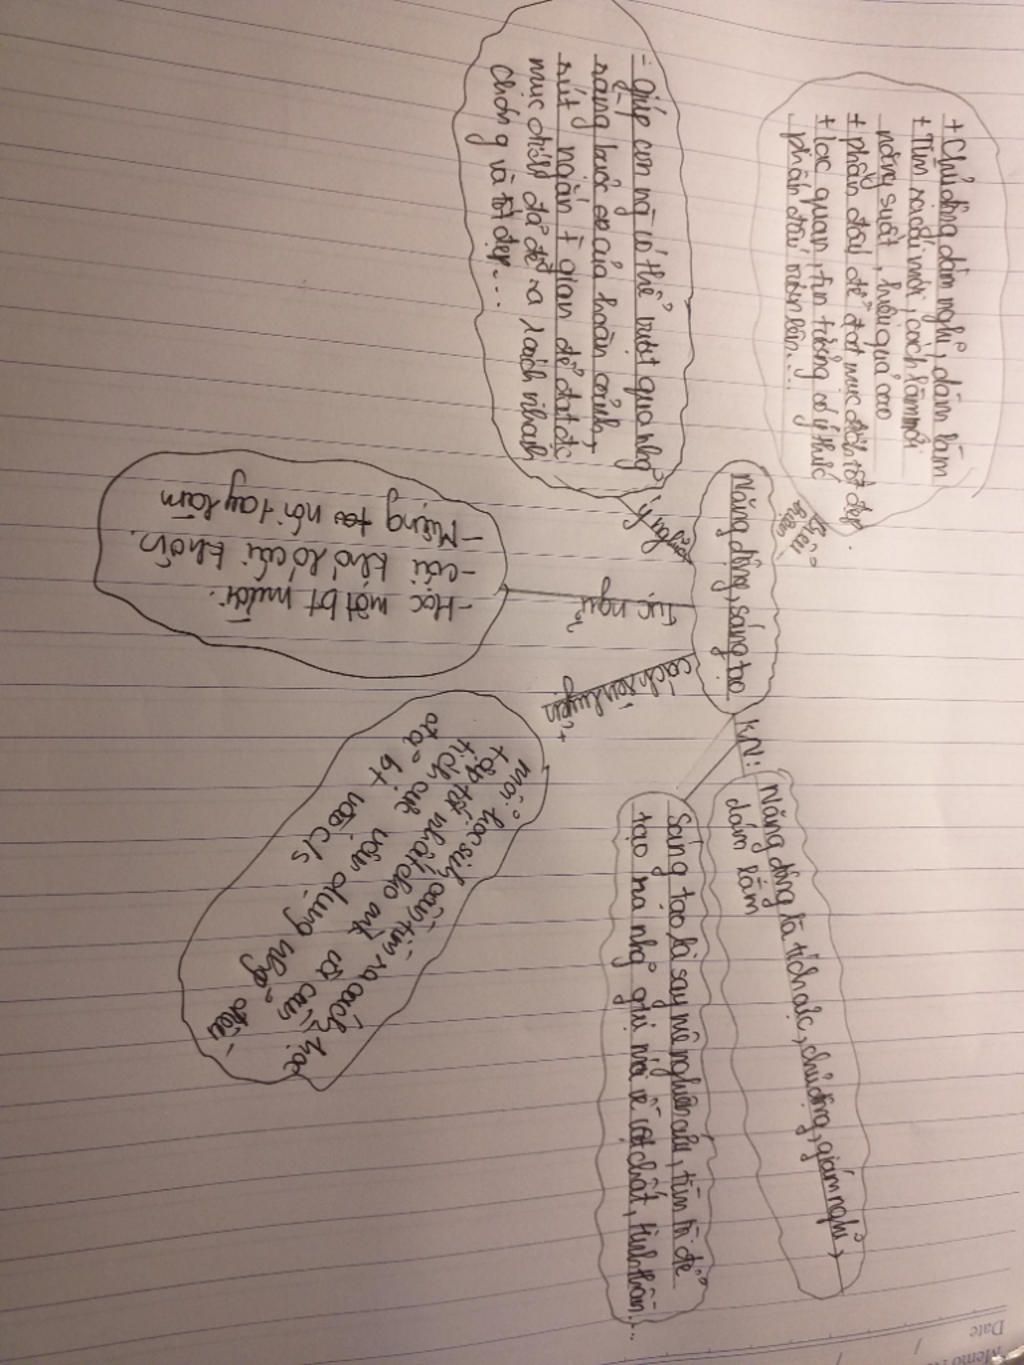 Năng động, sáng tạo
KN:
Năng động là tích cực, chủ động, giám nghĩ,
dám làm
Sáng tạo là say mê nghiên cứu, tìm tòi để
tạo ra nhg~ giá trị về vật chất, tinh thần...
Biểu
hiện
+ Chủ động dám nghĩ, dám làm
+ Tìm ra cái mới, cách làm mới
năng suất, hiệu quả cao
+ phấn đấu để đạt mục đích tốt đẹp
+ lạc quan, tin tưởng có ý thức
phấn đấu vươn lên...
ý nghĩa
- Giúp con ng có thể vượt qua nhg~
ràng buộc của hoàn cảnh,
rút ngắn t gian để đạt đc
mục đích đã đề ra 1 cách nhanh
chóng và tốt đẹp...
tục ngữ
- Học một bt mười.
- Cái khó ló cái khôn.
- Miệng nói tay làm
cách rèn luyện
mỗi học sinh cần tìm ra cách học
tập tốt nhất cho mk và cần
tích cực vận dụng nhg~ điều
đã bt vào c/s
Date
Memo